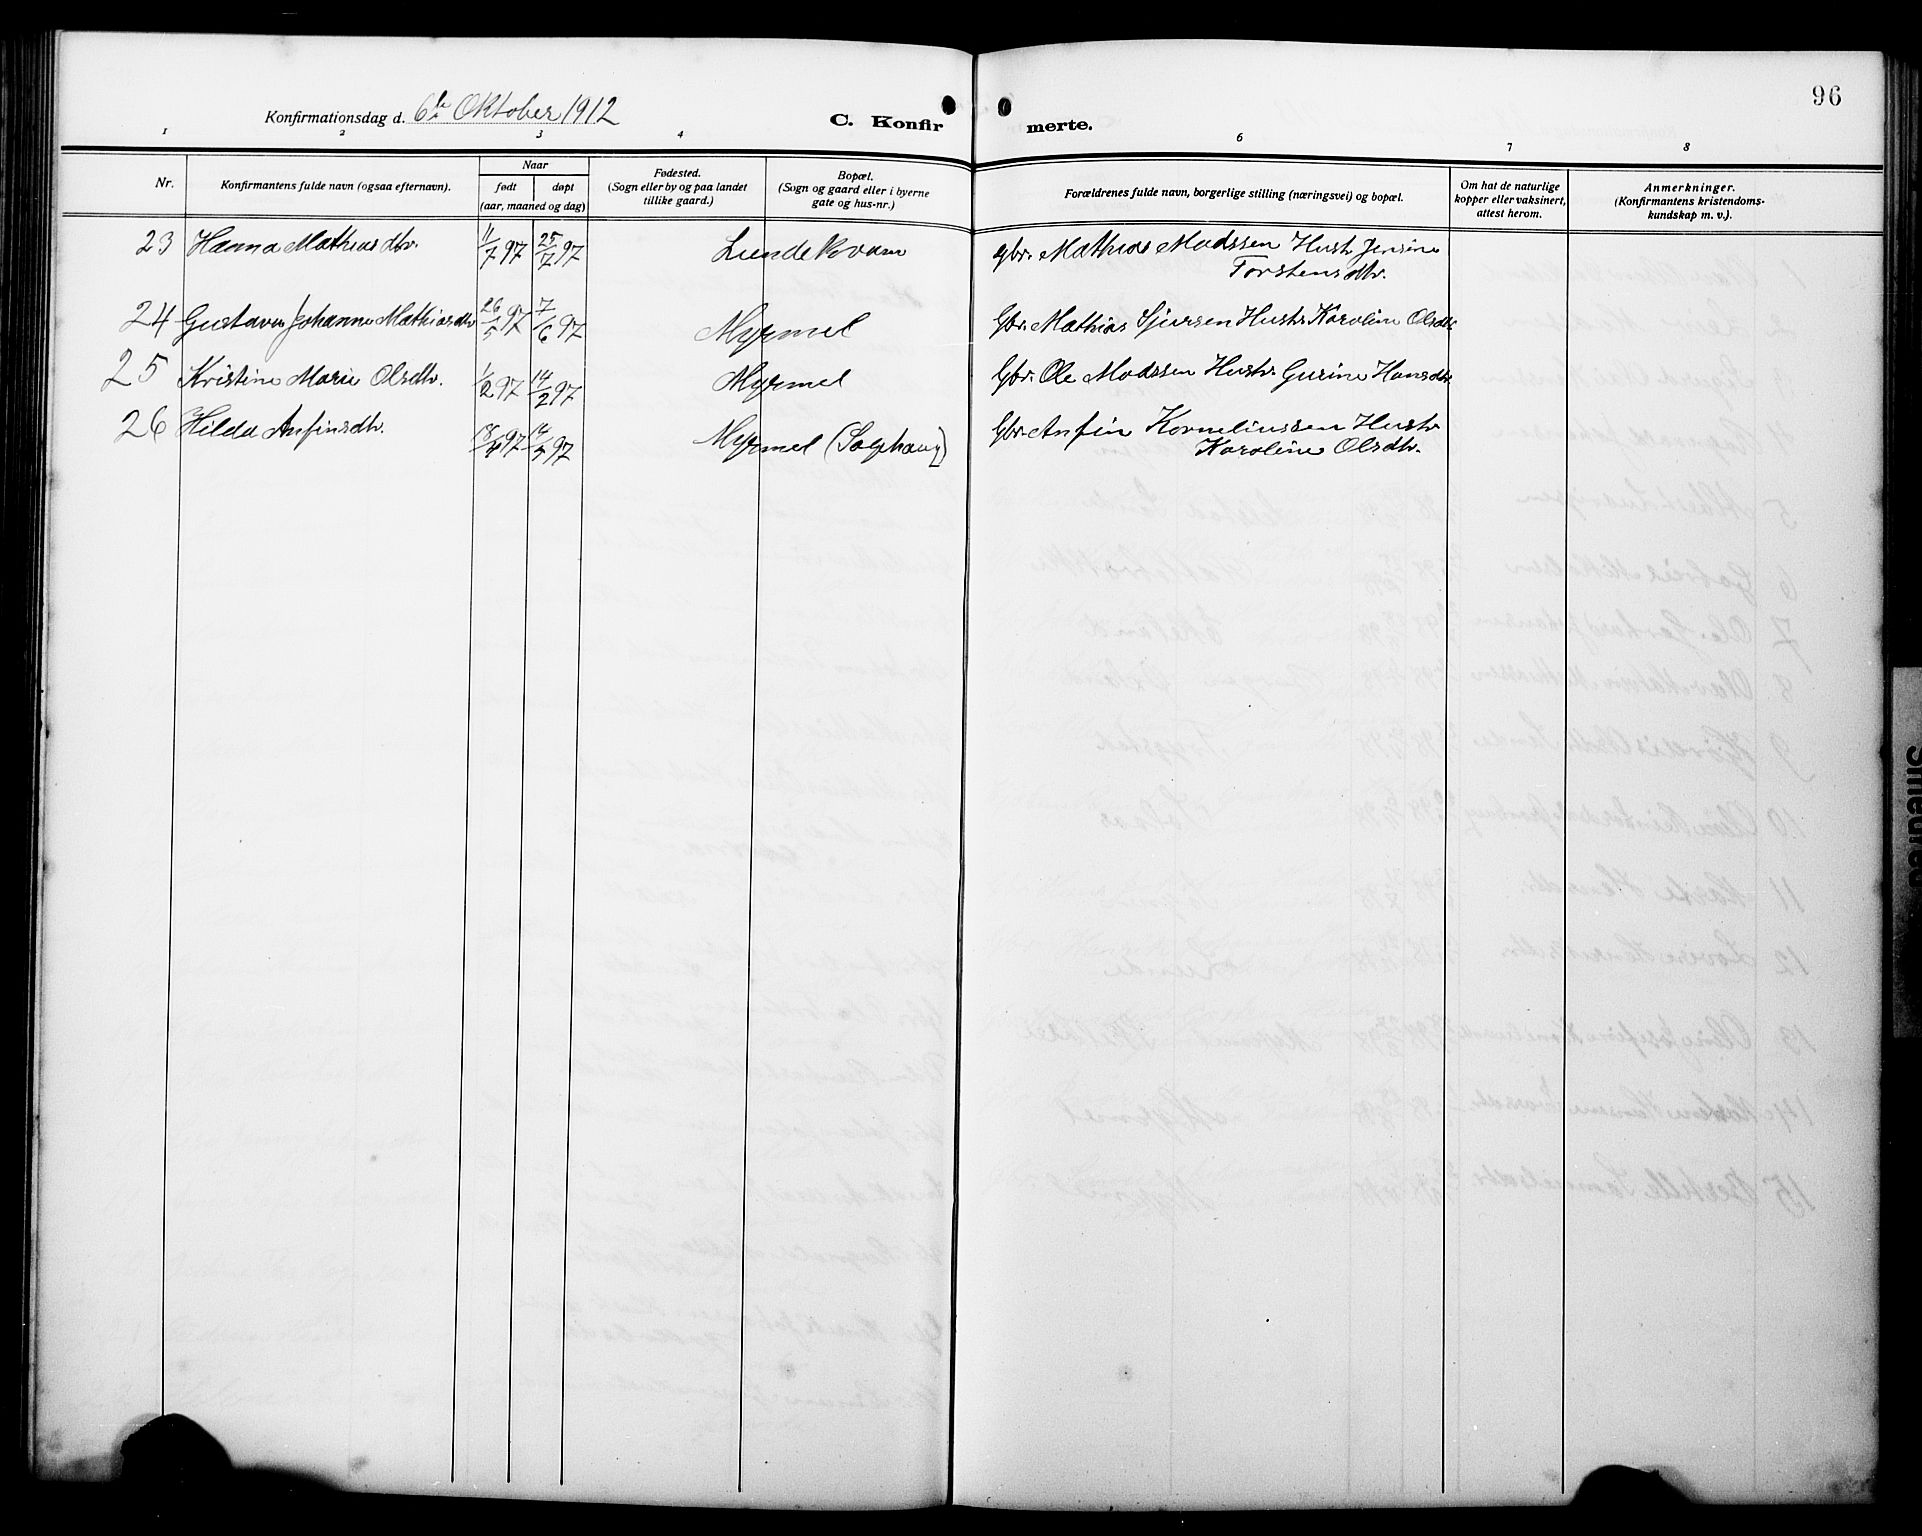 96
Konfirmationsdag d. 6te Oktober 1912
C. Konfir merte.
1 2 3 4 6 7 8
Nr.
Konfirmantens fulde navn (ogsaa efternavn).
Naar
født døpt
(aar, maaned og dag)
Fødested.
(Sogn eller by og paa landet
tillike gaard.)
Bopæl.
(Sogn og gaard eller i byerne
gate og hus-nr.)
Forældrenes fulde navn, borgerlige stilling (næringsvei) og bopæl.
Om hat de naturlige
kopper eller vaksinert,
attest herom.
Anmerkninger.
(Konfirmantens kristendoms-
kundskap m. v.).
23 Hanna Mathiasdtr. 11/7 97 25/7 97 Lundekvam Gbr. Mathias Madssen Hustr. Jensine
Torstensdtr.
24 Gustava Johanne Mathiasdtr 26/5 97 7/6 97 Myrmel Gbr. Mathias Sjursen Hustr Karoline Olsdtr
25 Kristine Marie Olsdtr. 1/2 97 14/2 97 Myrmel Gbr. Ole Madssen Hustr. Gurine Hansdtr.
26 Hilda Anfinsdtr. 97 97 Myrmel (Solphaug) Gbr. Anfin Kornelinssen Hustr
Karoline Olsdtr.